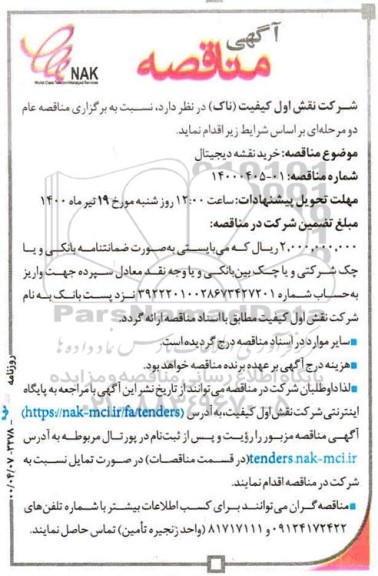 NAK
World Class Telecom Managed Services
آگهی
مناقصه
شرکت نقش اول کیفیت (ناک) در نظر دارد، نسبت به برگزاری مناقصه عام
دو مرحله‌ای بر اساس شرایط زیر اقدام نماید.
موضوع مناقصه: خرید نقشه دیجیتال
شماره مناقصه: ۰۱-۱۴۰۰۰۴۰۵
مهلت تحویل پیشنهادات: ساعت ۱۲:۰۰ روز شنبه مورخ ۱۹ تیر ماه ۱۴۰۰
مبلغ تضمین شرکت در مناقصه:
۲,۰۰۰,۰۰۰,۰۰۰ ریال که می‌بایستی به‌صورت ضمانتنامه بانکی و یا
چک شرکتی و یا چک بین‌بانکی و یا وجه نقد معادل سپرده جهت واریز
به‌حساب شماره ۳۹۲۲۲۰۱۰۰۲۸۶۷۳۴۲۷۲۰۱ نزد پست بانک به نام
شرکت نقش اول کیفیت مطابق با اسناد مناقصه ارائه گردد.
■سایر موارد در اسناد مناقصه درج گردیده است.
■هزینه درج آگهی بر عهده برنده مناقصه خواهد بود.
■لذا داوطلبان شرکت در مناقصه می‌توانند از تاریخ نشر این آگهی با مراجعه به پایگاه
اینترنتی شرکت نقش اول کیفیت، به آدرس (https://nak-mci.ir/fa/tenders)
آگهی مناقصه مزبور را رؤیت و پس از ثبت‌نام در پورتال مربوطه به آدرس
tenders.nak-mci.ir(در قسمت مناقصات) در صورت تمایل نسبت به
شرکت در مناقصه اقدام نمایند.
■مناقصه‌گران می‌توانند برای کسب اطلاعات بیشتر با شماره تلفن‌های
۰۹۱۲۴۱۷۲۴۲۲ و ۸۱۷۱۷۱۱۱ (واحد زنجیره تأمین) تماس حاصل نمایند.
روزنامه
۰۰/۰۴/۰۷
ParsNamadData
پایگاه اطلاع رسانی مناقصه و مزایده